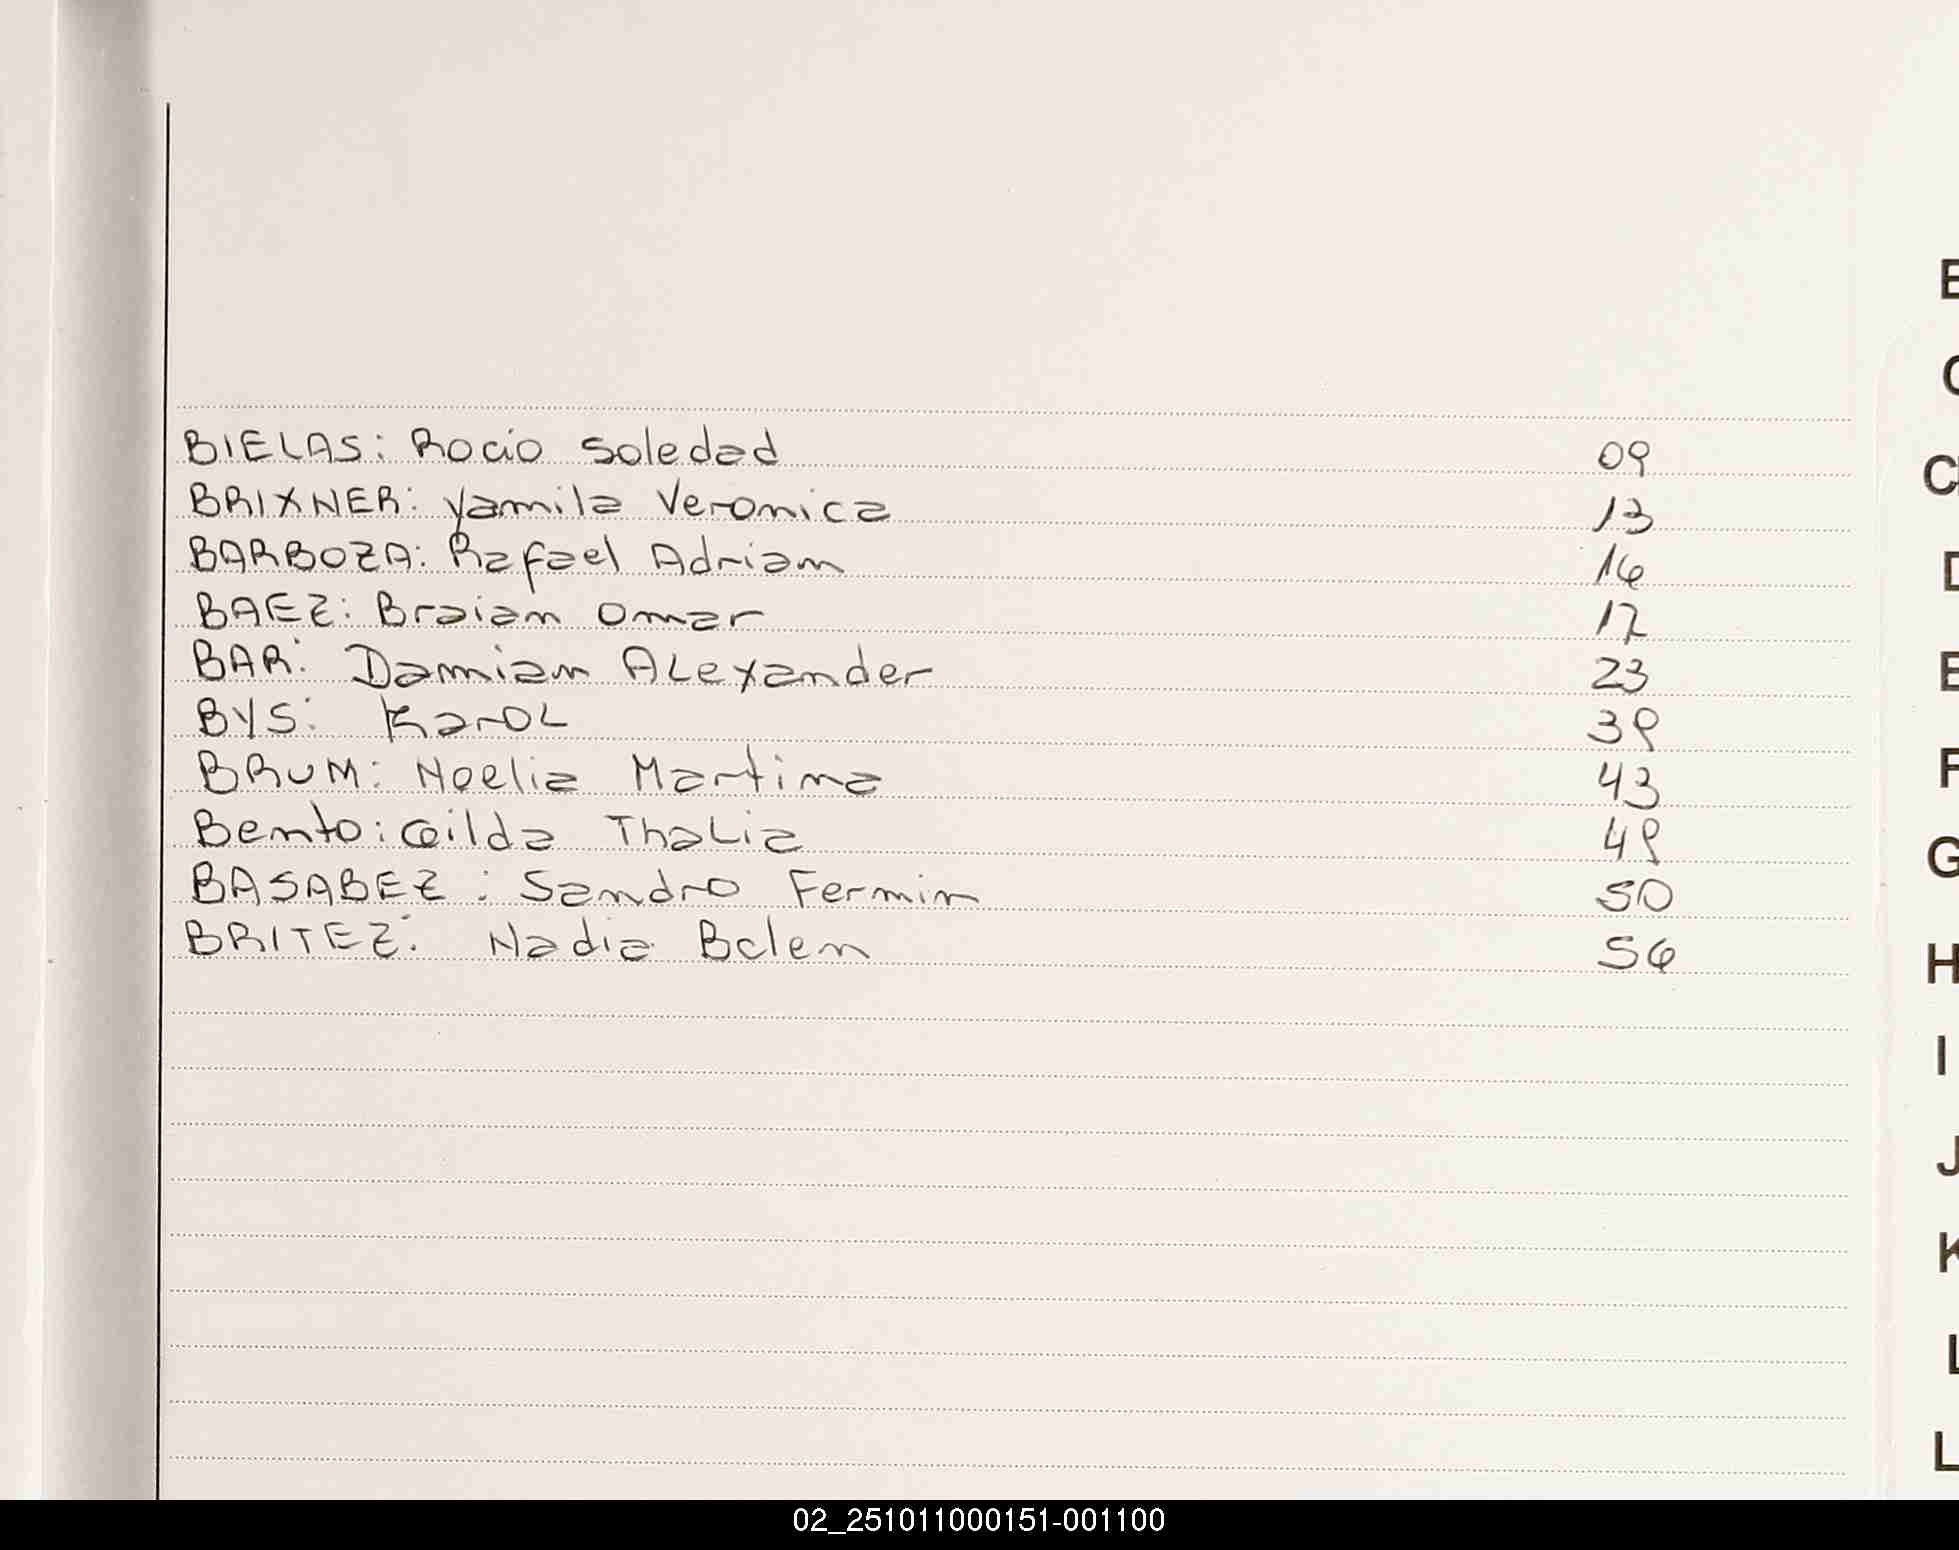 BIELAS: Rocio Soledad 09
BRIXNER: Yamila Veronica 13
BARBOZA: Rafael Adrian 16
BAEZ: Braian Omar 17
BAR: Damian Alexander 23
BYS: Karol 39
BRUM: Noelia Martina 43
Bento: Gilda Thalia 49
BASABEZ: Sandro Fermin 50
BRITEZ: Nadia Belen 56
E
C
C
D
E
F
G
H
I
J
K
L
L
02_251011000151-001100